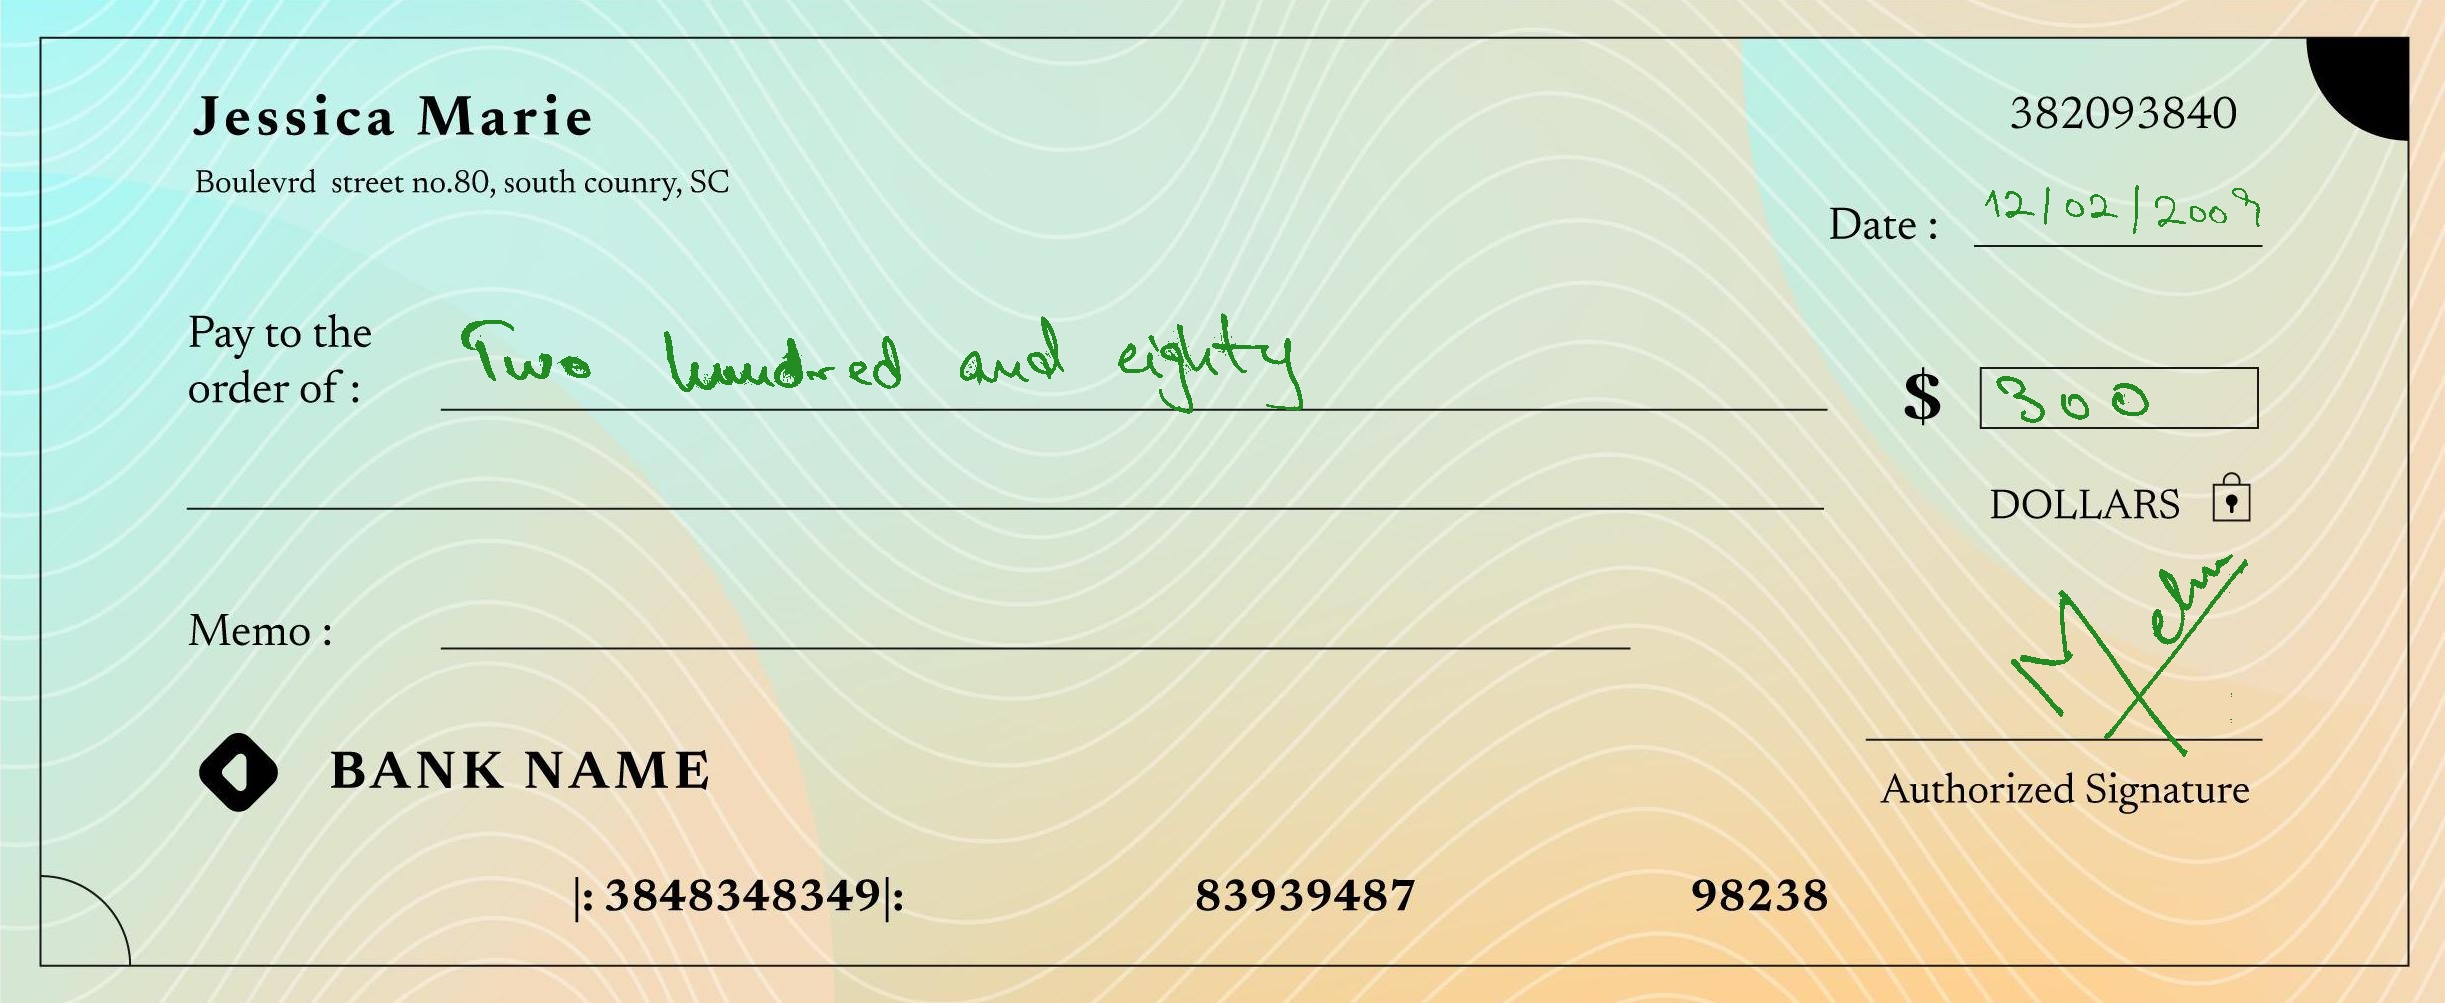 Jessica Marie
382093840
Boulevrd street no.80, south counry, SC
Date : 12/02/2009
Pay to the
order of : Two hundred and eighty
$ 300
DOLLARS
Memo :
BANK NAME
Authorized Signature
|: 3848348349|: 83939487 98238